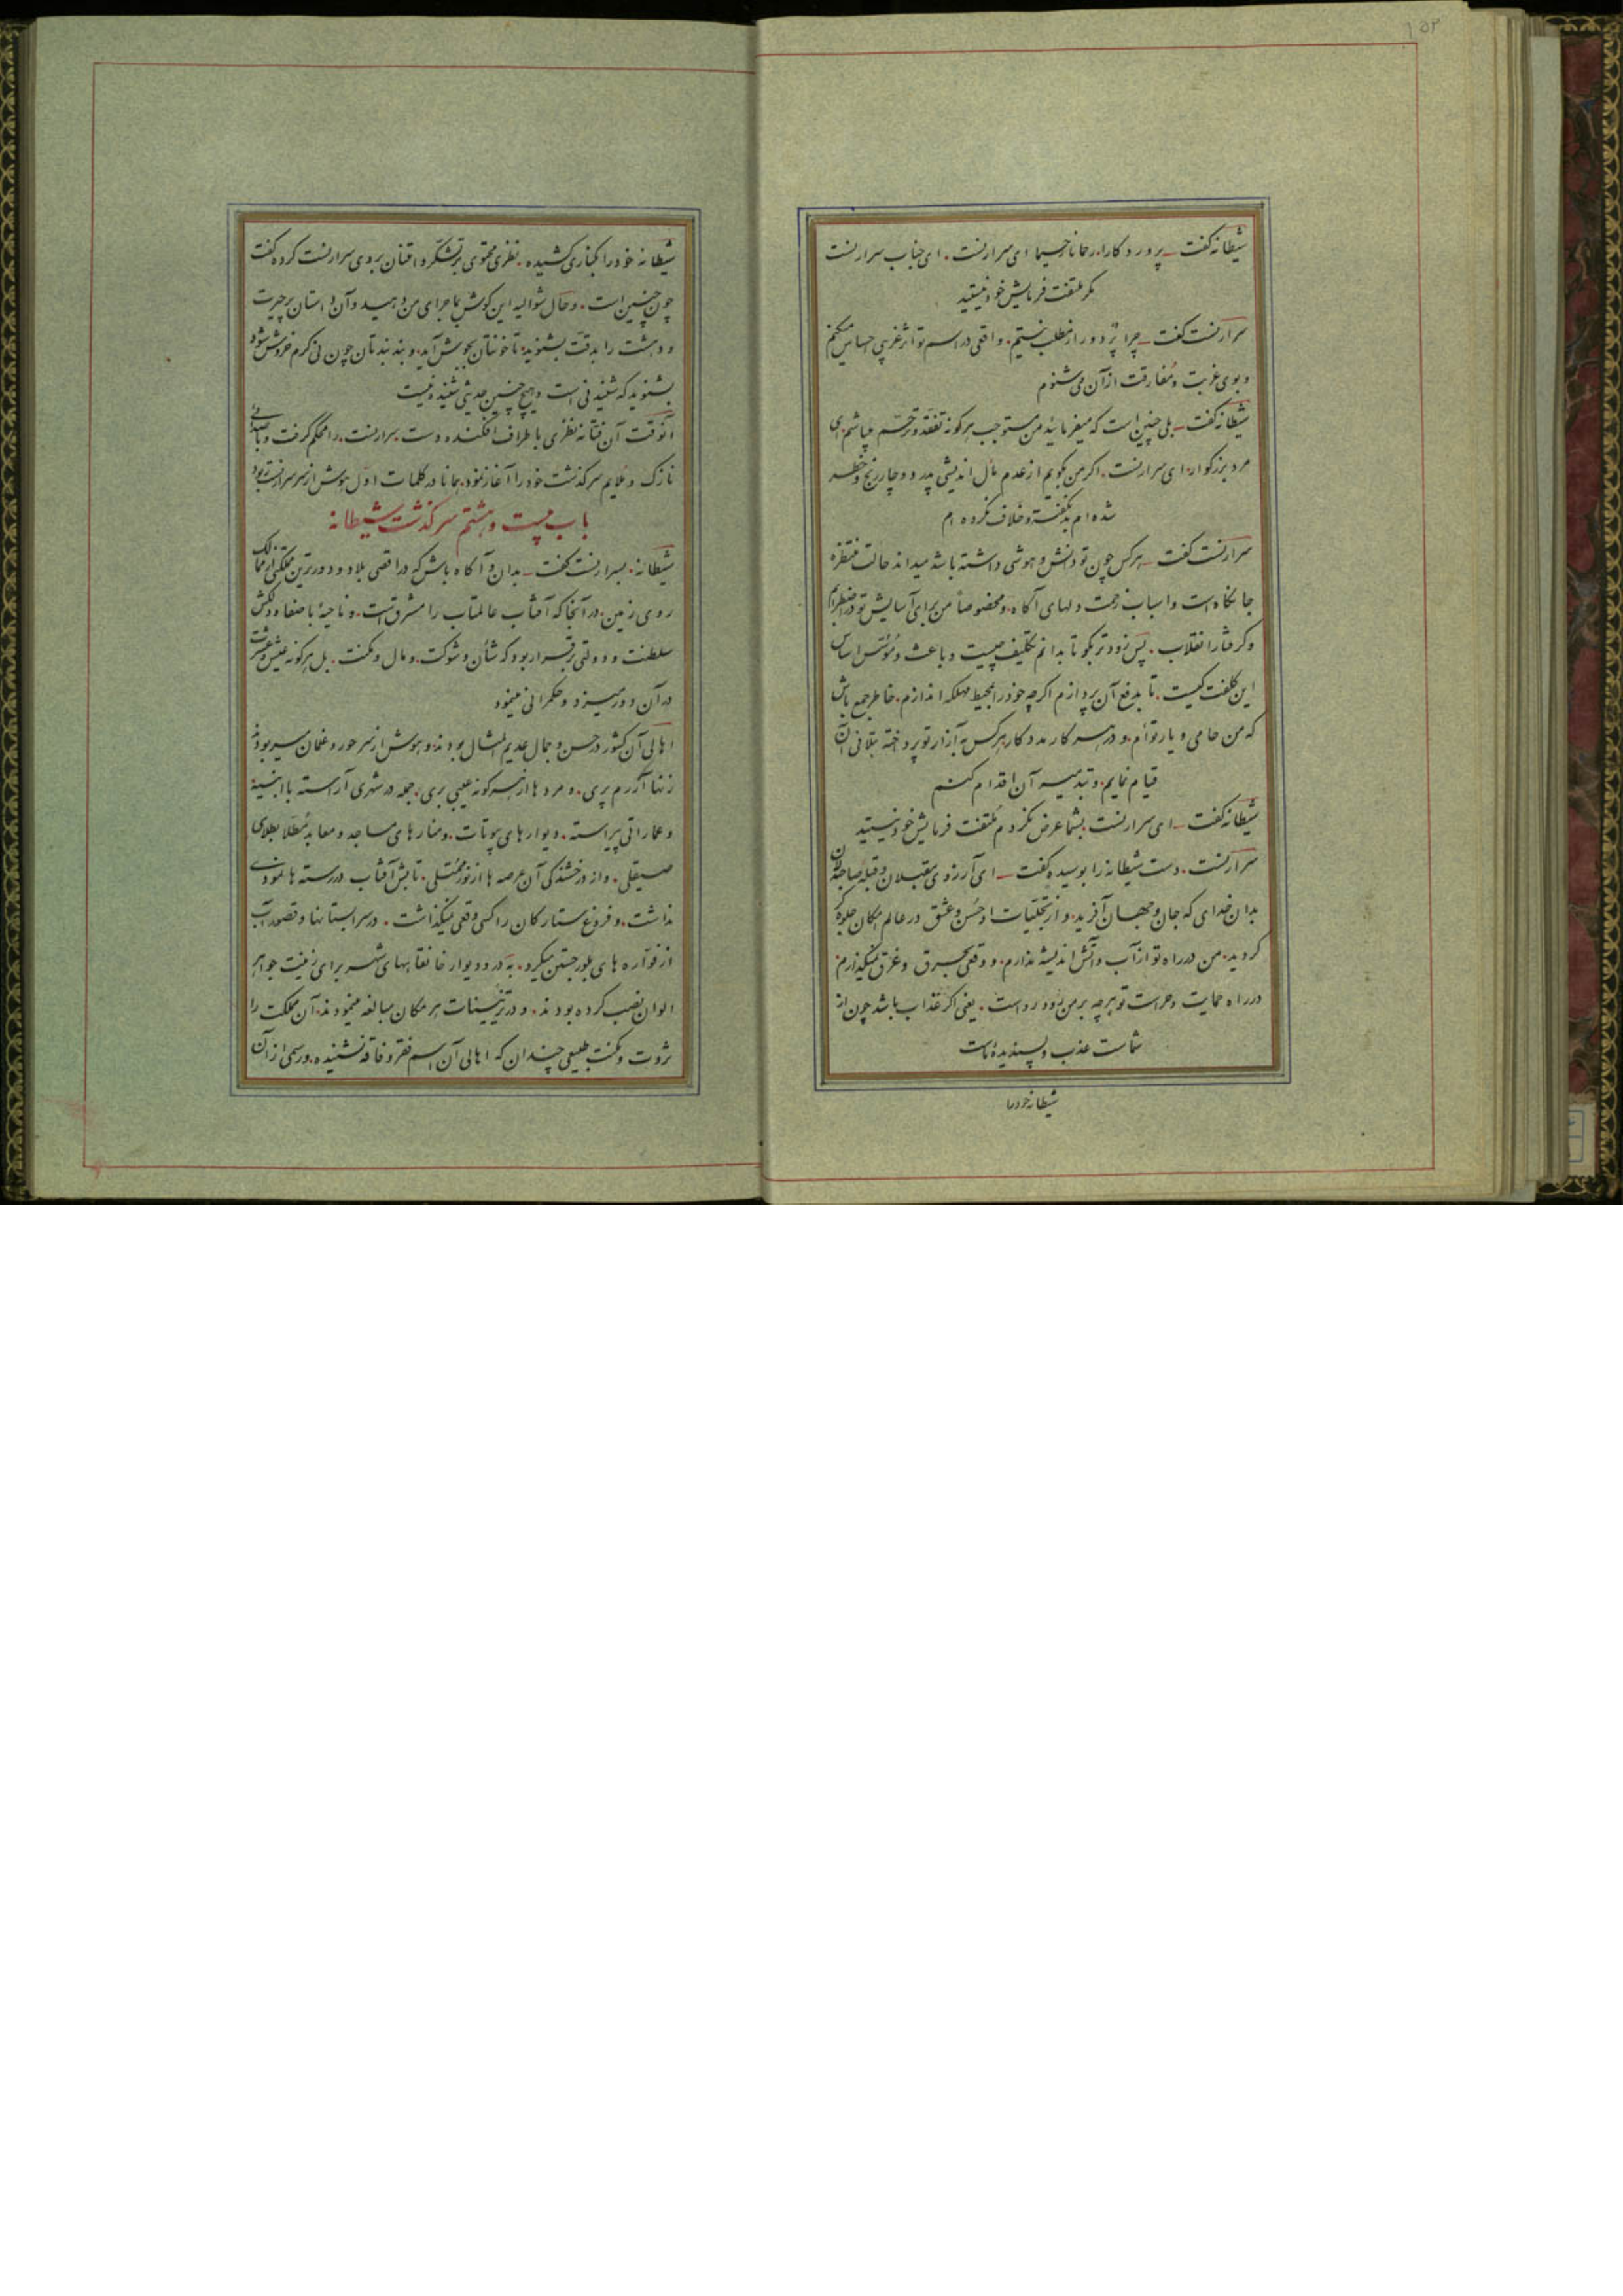 ۱۵۳
شیطانه گفت ـ پروردگارا. رحمانا رحیما ای سرارنست. ای جناب سرارنست
مگر ملتفت فرمایش خود نیستید
سرارنست گفت ـ چرا پُر دور از مطلب نیستم. واقعی در اسم تو اثر غریبی احساس میکنم
و بوی غربت و مُفارقت از آن می‌شنوم
شیطانه گفت ـ بلی چنین است که میفرمائید من مستوجب هرگونه تفقّد و ترحّم میباشم. ای
مرد بزرگوار. ای سرارنست. اگر من بگویم از عدم مآل اندیشی پدر دوچار رنج و خطر
شده‌ام بد نگفته و خلاف نکرده‌ام
سرارنست گفت ـ هرکس چون تو دانش و هوشی داشته باشد میداند حالت منتظره
جانکاه است و اسباب زحمت دلهای آگاه. و مخصوصاً من برای آسایش تو در اضطرابم
و گرفتار انقلاب. پس زودتر بگو تا بدانم تکلیف چیست و باعث و مُؤسّس اساس
این کلفت کیست. تا بدفع آن پردازم اگرچه خود را بمحیط مهلکه اندازم. خاطر جمع باش
که من حامی و یار توأم. و در هر کار مددکار هرکس به آزار تو پرداخته بتلافی آن
قیام نمایم. و بتدمیر آن اقدام کنم
شیطانه گفت ـ ای سرارنست بشما عرض نکردم مُلتفت فرمایش خود نیستید
سرارنست. دست شیطانه را بوسیده گفت ـ ای آرزوی مقبلان و قبله صاحبدلان
بدان خدای که جان و جهان آفرید. و از تجلّیات او حُسن و عشق در عالم امکان جلوه‌گر
گردید. من در راه تو از آب و آتش اندیشه ندارم. و وقعی بحرق و غرق نمیگذارم
در راه حمایت و حراست تو هرچه بر من رود رواست. یعنی اگر عذاب باشد چون از
شماست عذب و پسندیده ماست
شیطانه خود را
شیطانه خود را بکناری کشیده. نظری محتوی بر تشکّر و امتنان بروی سرارنست کرده گفت
چون چنین است. و حال شوالیه این گوش بماجرای من دهید و آن داستان پرحیرت
و دهشت را بدقّت بشنوید. تا خونتان بجوش آید. و بند بندتان چون نی گرم خروش شود
بشنوید که شنیدنی است و هیچ چنین حدیثی شنیده نیست
آنوقت آن فتّانه نظری باطراف افکنده دست سرارنست. را محکم گرفت و با صدائی
نازک و ملایم سرگذشت خود را آغاز نمود. همانا در کلمات اوّل هوش از سر سرارنست ربود
باب بیست و هشتم سرگذشت شیطانه
شیطانه. بسرارنست گفت ـ بدان و آگاه باش که در اقصی بلاد و دورترین مملکتی از ممالک
روی زمین. در آنجا که آفتاب عالمتاب را مشرق است. و ناحیهٔ باصفا و دلکش
سلطنت و دولتی برقرار بود که شأن و شوکت. و مال و مکنت. بل هرگونه عیش و عشرت
در آن دور میزد و حکمرانی مینمود
اهالی آن کشور در حسن و جمال عدیم‌المثال بودند. و هوش از سر حور و غلمان میربودند
زنها آزرم پری. و مردها از هرگونه عیبی بری. جمله در شهری آراسته با ابنیهٔ
و عماراتی پیراسته. دیوارهای بیوتات. و منارهای مساجد و معابد مُطلّا بطلای
صیقلی. و از درخشندگی آن عرصه‌ها از نور مُمتلی. تابش آفتاب در رسته‌ها نمودی
نداشت. و فروغ ستارگان را کسی وقعی نمیگذاشت. در سرابستانها و قصور آب
از فوّاره‌های بلور جستن میکرد. به در و دیوار خانقاههای شهر برای زینت جواهر
الوان نصب کرده بودند. و در تزیینات هر مکان مبالغه مینمودند. آن مملکت را
ثروت و مکنت طبیعی چندان که اهالی آن اسم فقر و فاقه نشنیده. و رسمی از آن